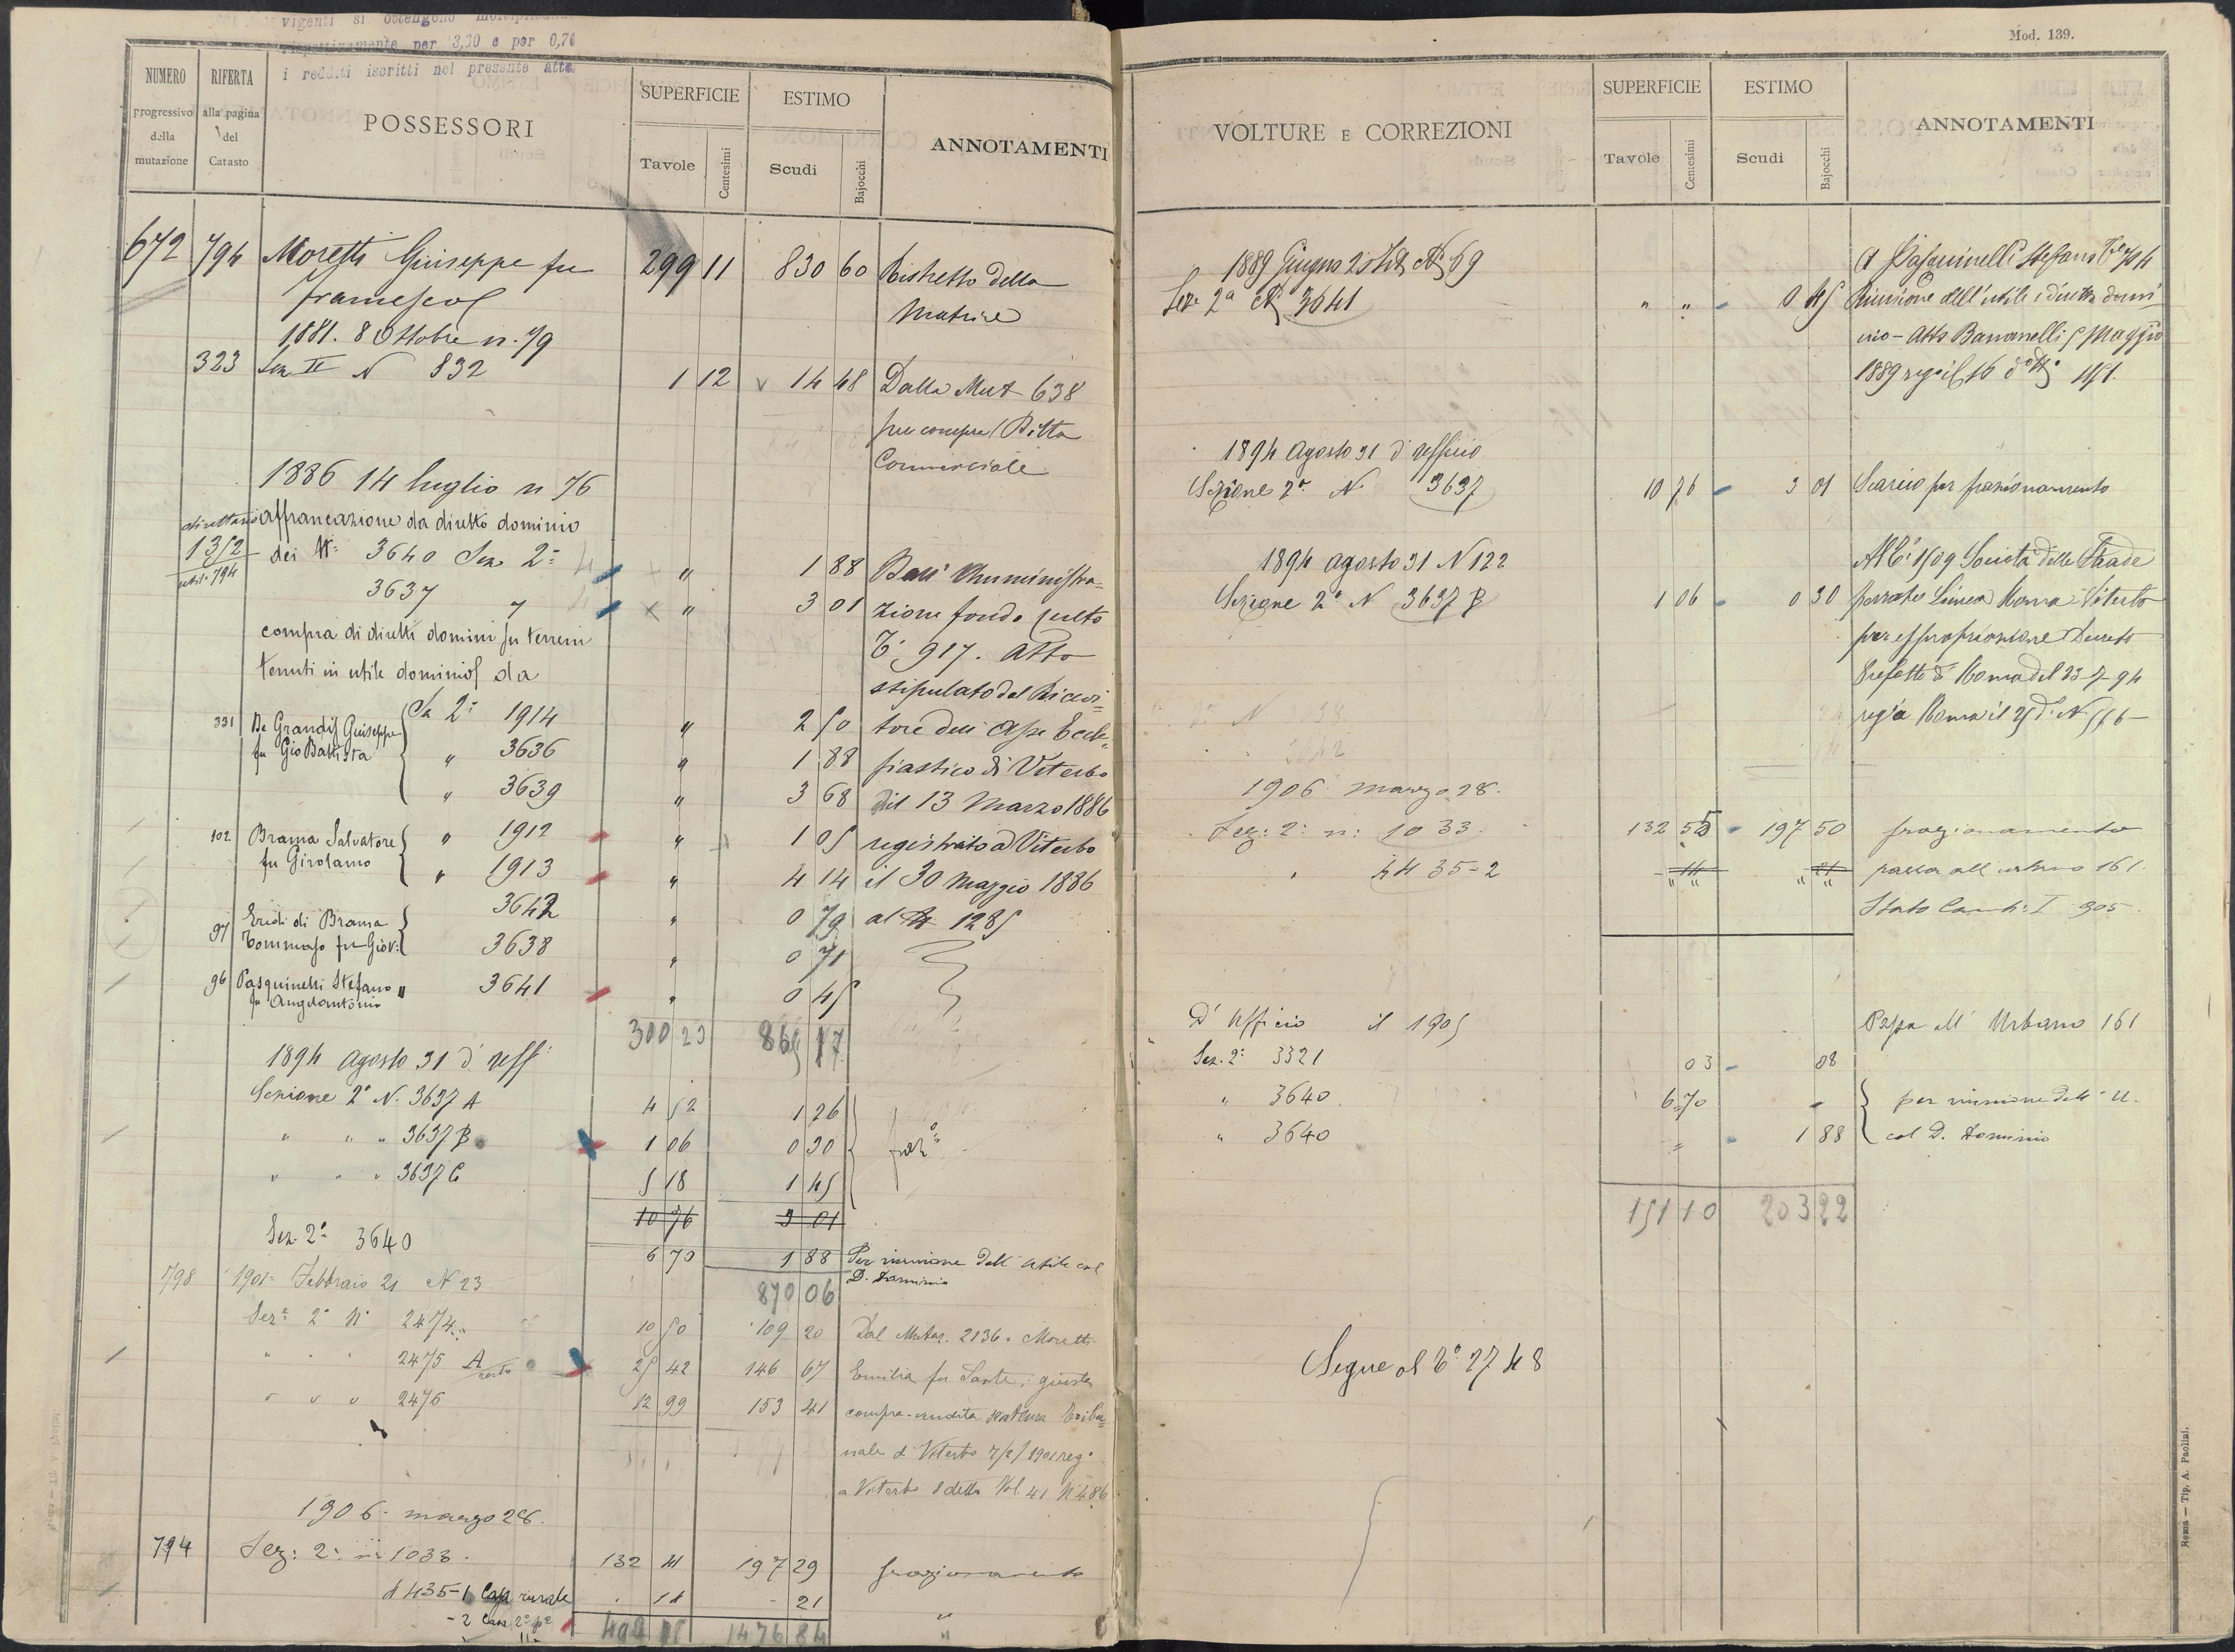 vigenti si ottengono
rispettivamente per 3,30 e per 0,70
i redditi iscritti nel presente atto
NUMERO progressivo della mutazione
RIFERTA alla pagina del Catasto
POSSESSORI
SUPERFICIE
Tavole Centesimi
ESTIMO
Scudi Bajocchi
ANNOTAMENTI
672 794 Moretti Giuseppe fu 299 11 830 60 Ristretto della
Francesco Matrice
1881. 8 Ottobre n. 79
323 Sez II N 832 1 12 14 48 Dalla Mut 638
per compra Ditta
Commerciale
1886 14 luglio n 76
affrancazione da diretto dominio
1352 dei N: 3640 Sez 2: " 1 88 Dall' Amministra-
utile 794
3637 " " 3 01 zione fondo culto
compra di diretti domini su terreni T: 917. Atto
tenuti in utile dominio da stipulato dal Ricevi-
331 De Grandis Giuseppe Sez 2: 1914 " 2 50 tore dell' Asse Eccle-
fu Gio Battista " 3636 " 1 88 siastico di Viterbo
" 3639 " 3 68 del 13 Marzo 1886
102 Brama Salvatore " 1912 " 1 05 registrato a Viterbo
fu Girolamo " 1913 " 4 14 il 30 Maggio 1886
3642 " 0 79 al N 1285
97 Eredi di Brama
Tommaso fu Giov: 3638 " 0 71
96 Pasquinelli Stefano " 3641 " 0 45
fu Angelantonio
300 23 865 17
1894 Agosto 31 d' uff:
Sezione 2a N. 3637 A 4 52 1 26
" " " 3637 B 1 06 0 30 fraz.
" " " 3637 C 5 18 1 45
10 76 3 01
Sez. 2a 3640 6 70 1 88 Per riunione dell' utile col
D. Dominio
870 06
798 1901 = Febbraio 21 N 23
Sez: 2a N: 2474 10 50 109 20 Dal Mutaz. 2136 = Moretti
" " " 2475 A resto 25 42 146 67 Emilia fu Sante; giusta
" " " 2476 12 99 153 41 compra-vendita Tribu-
nale di Viterbo 7/2/1901 reg:
a Viterbo 8 detto Vol. 41 N 486
1906 - marzo 28.
794 Sez: 2: n: 1033. 132 41 197 29 frazionamento
4435-1 Casa rurale 14 21
- 2 Casa "
1476 84
Mod. 139.
VOLTURE E CORREZIONI
SUPERFICIE
Tavole Centesimi
ESTIMO
Scudi Bajocchi
ANNOTAMENTI
1889 Giugno N 69 A Pasquinelli Stefano
Sez 2a N 3641 " " 0 45 Riunione dell' utile e diretto domi-
nio - Atto Maggio
1889
1894 Agosto 31 d' Ufficio
Sezione 2a N. 3637 10 76 3 01 Scarico per frazionamento
1894 Agosto 31 N 122 Al T: 1509 Società delle Strade
Sezione 2a N 3637 B 1 06 0 30 ferrate Linea Roma-Viterbo
per espropriazione Decreto
Prefetto di Roma del 23-7-94
1906 marzo 28.
Sez: 2: n: 1033. 132 55 197 50 frazionamento
" 4435-2 14 21 passa all' urbano 161.
" " " "
D' Ufficio il 1905 Passa all' Urbano 161
Sez. 2a 3321 03 08
" 3640 6.70 - per riunione dell' U.
" 3640 " 1 88 col D. Dominio
151 10 203 22
Segue al T: 2748
Roma — Tip. A. Paolini.